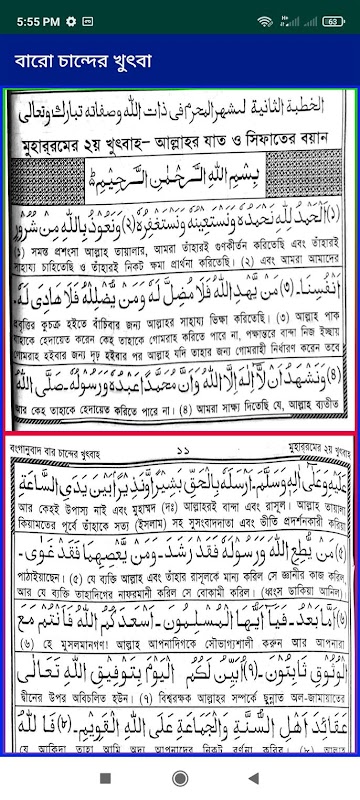 5:55 PM
63
বারো চান্দের খুৎবা
الخطبة الثانية لشهر المحرم فى ذات الله وصفاته تبارك وتعالى
মুহার্‌রমের ২য় খুৎবাহ– আল্লাহর যাত ও সিফাতের বয়ান
بِسْمِ اللهِ الرَّحْمٰنِ الرَّحِيْمِ
(١) اَلْحَمْدُ لِلّٰهِ نَحْمَدُهٗ وَنَسْتَعِيْنُهٗ وَنَسْتَغْفِرُهٗ (٢) وَنَعُوْذُ بِاللهِ مِنْ شُرُوْرِ
(১) সমস্ত প্রশংসা আল্লাহ তায়ালার, আমরা তাঁহারই গুণকীর্তন করিতেছি এবং তাঁহারই
সাহায্য চাহিতেছি ও তাঁহারই নিকট ক্ষমা প্রার্থনা করিতেছি। (২) এবং আমরা আমাদের
اَنْفُسِنَا۔ (٣) مَنْ يَّهْدِ اللهُ فَلَا مُضِلَّ لَهٗ وَمَنْ يُّضْلِلْهُ فَلَا هَادِىَ لَهٗ۔
প্রবৃত্তির কুচক্র হইতে বাঁচিবার জন্য আল্লাহর সাহায্য ভিক্ষা করিতেছি। (৩) আল্লাহ পাক
যাহাকে হেদায়েত করেন কেহ তাহাকে গোমরাহ করিতে পারে না, পক্ষান্তরে বান্দা নিজ ইচ্ছায়
গোমরাহ হইবার জন্য দৃঢ় হইবার পর আল্লাহ যদি তাহার জন্য গোমরাহী নির্ধারণ করেন তবে
(٤) وَنَشْهَدُ اَنْ لَّا اِلٰهَ اِلَّا اللهُ وَاَنَّ مُحَمَّدًا عَبْدُهٗ وَرَسُوْلُهٗ۔ صَلَّى اللهُ
আর কেহ তাহাকে হেদায়েত করিতে পারে না। (৪) আমরা সাক্ষ্য দিতেছি যে, আল্লাহ ব্যতীত
বংগানুবাদ বার চান্দের খুৎবাহ ১১ মুহার্‌রমের ২য় খুৎবাহ
عَلَيْهِ وَعَلٰى اٰلِهٖ وَسَلَّمَ۔ اَرْسَلَهٗ بِالْحَقِّ بَشِيْرًا وَّنَذِيْرًا بَيْنَ يَدَىِ السَّاعَةِ
আর কেহই উপাস্য নাই এবং মুহাম্মদ (দঃ) আল্লাহরই বান্দা এবং রাসূল। আল্লাহ তায়ালা
কিয়ামতের পূর্বে তাঁহাকে সত্য (ইসলাম) সহ সুসংবাদদাতা এবং ভীতি প্রদর্শনকারী করিয়া
(٥) مَنْ يُّطِعِ اللهَ وَرَسُوْلَهٗ فَقَدْ رَشَدَ۔ وَمَنْ يَّعْصِهِمَا فَقَدْ غَوٰى۔
পাঠাইয়াছেন। (৫) যে ব্যক্তি আল্লাহ এবং তাঁহার রাসূলকে মান্য করিল সে জ্ঞানীর কাজ করিল,
আর যে ব্যক্তি তাহাদিগের নাফরমানী করিল সে বোকামী করিল। (ধ্বংস ডাকিয়া আনিল)
(٦) اَمَّا بَعْدُ۔ فَيَا اَيُّهَا الْمُسْلِمُوْنَ۔ اَسْعَدَكُمُ اللهُ فَاَنْتُمْ مَعَ
(৬) হে মুসলমানগণ! আল্লাহ আপনাদিগকে সৌভাগ্যশালী করুন আর আপনারা
الْوُثُوْقِ ثَابِتُوْنَ۔ (٧) اُبَيِّنُ لَكُمُ الْيَوْمَ بِتَوْفِيْقِ اللهِ تَعَالٰى
দ্বীনের উপর অবিচলিত হউন। (৭) বিশ্বরক্ষক আল্লাহর সম্পর্কে ছুন্নাত অল-জামায়াতের
عَقَائِدَ اَهْلِ السُّنَّةِ وَالْجَمَاعَةِ عَلَى اللهِ الْقَوِيْمِ۔ (٨) فَا لِلّٰهُ
যে আকিদা তাহা আমি অদ্য আপনাদের নিকট বর্ণনা করিব। (৮) আল্লাহ